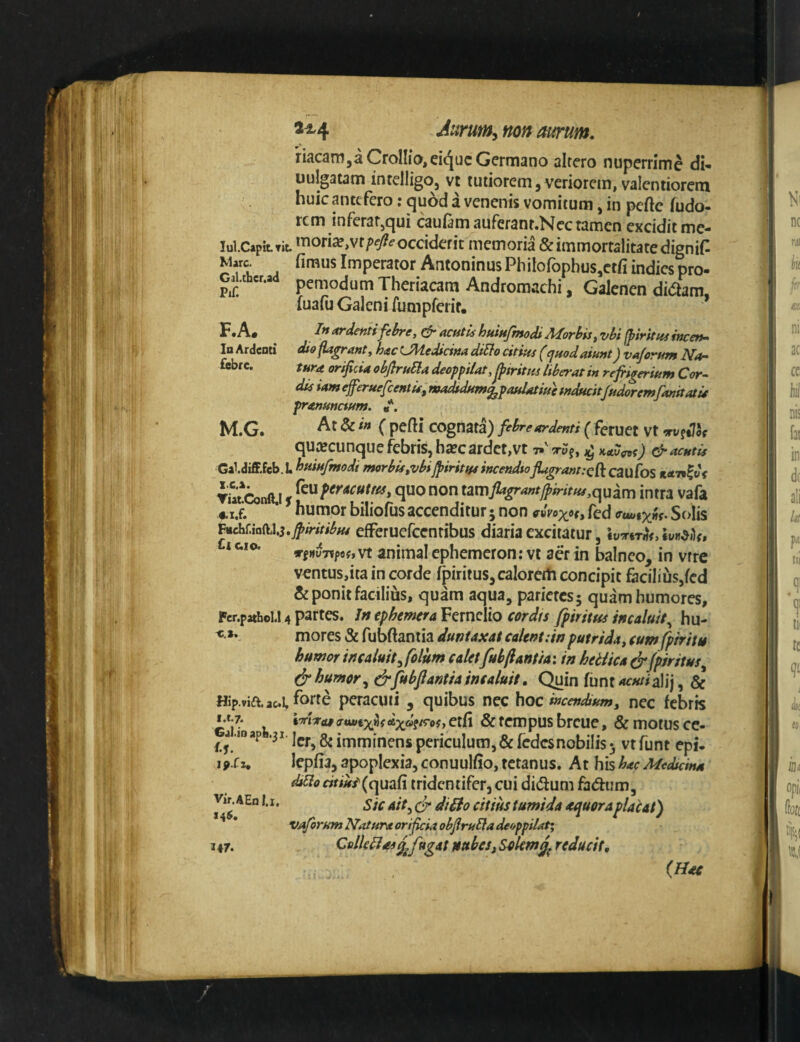 224 Aurum, non aurum.
riacam, à Crollio, eiq́ue Germano altero nuperrimè di-
uulgatam intelligo, vt tutiorem, veriorem, valentiorem
huic antefero: quòd à venenis vomitum, in peste sudo-
rem inferat, qui causam auferant. Nec tamen excidit me-
Iul.Capit.vit. moriæ, vt peste occiderit memoria & immortalitate dignis-
Marc. simus Imperator Antoninus Philosophus, etsi indies pro-
Gal.ther.ad pemodum Theriacam Andromachi, Galenen dictam,
Pis. suasu Galeni sumpserit.
F.A. In ardenti febre, & acutis huiusmodi Morbis, vbi spiritus incen-
In Ardenti dio flagrant, hæc Medicina dicto citius (quod aiunt) vasorum Na-
febre. turæ orificia obstructa deoppilat, spiritus liberat in refrigerium Cor-
dis iam efferuescentis, madidumq́; paulatim inducit sudorem sanitatis
prænuncium.
M.G. At & in (pesti cognata) febre ardenti (feruet vt πυρετὸς
quæcunque febris, hæc ardet, vt τὸ πῦρ, καὶ καῦσος) & acutis
Gal.diff.feb.l. huiusmodi morbis, vbi spiritus incendio flagrant: est causos κατοξὺς
1.c.2. seu peracutus, quo non tam flagrant spiritus, quàm intra vasa
Viat.Const.l 5 humor biliosus accenditur; non σύνοχος, sed συνεχής. Solis
4.1.f.
Fuchs.inst.l.3. spiritibus efferuescentibus diaria excitatur,
s.1 c.10. vt animal ephemeron: vt aër in balneo, in vtre
ventus, ita in corde spiritus, calorem concipit facilius, sed
& ponit facilius, quàm aqua, parietes; quàm humores,
Fer.pathol.l 4 partes. In ephemera Fernelio cordis spiritus incaluit, hu-
c.2. mores & substantia duntaxat calent: in putrida, cum spiritu
humor incaluit, solùm calet substantia: in hectica & spiritus,
& humor, & substantia incaluit. Quin sunt acuti alij, &
Hip.vict.ac.l. fortè peracuti, quibus nec hoc incendium, nec febris
1.t.7. etsi & tempus breue, & motus ce-
Gal.in aph.31. ler, & imminens periculum, & sedes nobilis; vt sunt epi-
s.f.
19.s 2. lepsia, apoplexia, conuulsio, tetanus. At his hæc Medicina
dicto citius (quasi tridentifer, cui dictum factum,
Vir.AEn l.1. Sic ait, & dicto citius tumida æquora placat)
146. vasorum Naturæ orificia obstructa deoppilat;
147. Collectasq́; fugat nubes, Solemq́; reducit.
(Hæc